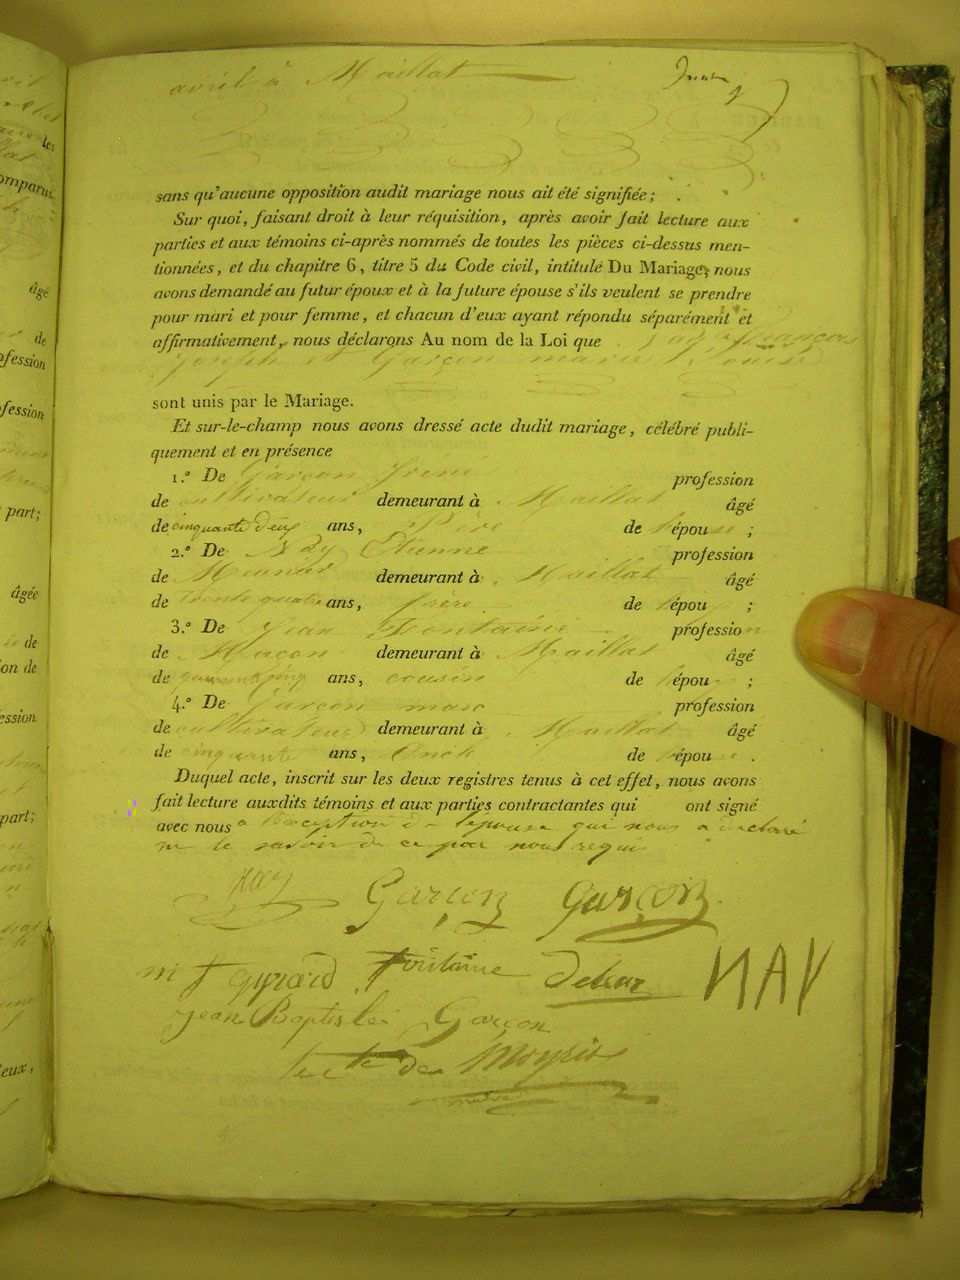 avril à Maillat
sans qu'aucune opposition audit mariage nous ait été signifiée ;
Sur quoi, faisant droit à leur réquisition, après avoir fait lecture aux
parties et aux témoins ci-après nommés de toutes les pièces ci-dessus men-
tionnées, et du chapitre 6, titre 5 du Code civil, intitulé Du Mariage, nous
avons demandé au futur époux et à la future épouse s'ils veulent se prendre
pour mari et pour femme, et chacun d'eux ayant répondu séparément et
affirmativement, nous déclarons Au nom de la Loi que Nay François
Joseph & Garçon marie Louise
sont unis par le Mariage.
Et sur-le-champ nous avons dressé acte dudit mariage, célébré publi-
quement et en présence
1.° De Garçon profession
de cultivateur demeurant à Maillat âgé
de cinquante deux ans, Père de l'épouse ;
2.° De Nay Etienne profession
de Meunier demeurant à Maillat âgé
de trente quatre ans, frère de l'épou ;
3.° De Jean Fontaine profession
de Maçon demeurant à Maillat âgé
de quarante cinq ans, cousin de l'épou ;
4.° De Garçon marc profession
de cultivateur demeurant à Maillat âgé
de cinquante ans, Oncle de l'épouse .
Duquel acte, inscrit sur les deux registres tenus à cet effet, nous avons
fait lecture auxdits témoins et aux parties contractantes qui ont signé
avec nous a l'exception de l'épouse qui nous a declaré
ne le savoir de ce par nous requis
Nay Garçon Garçon
Fontaine NAY
Jean Baptiste Garçon